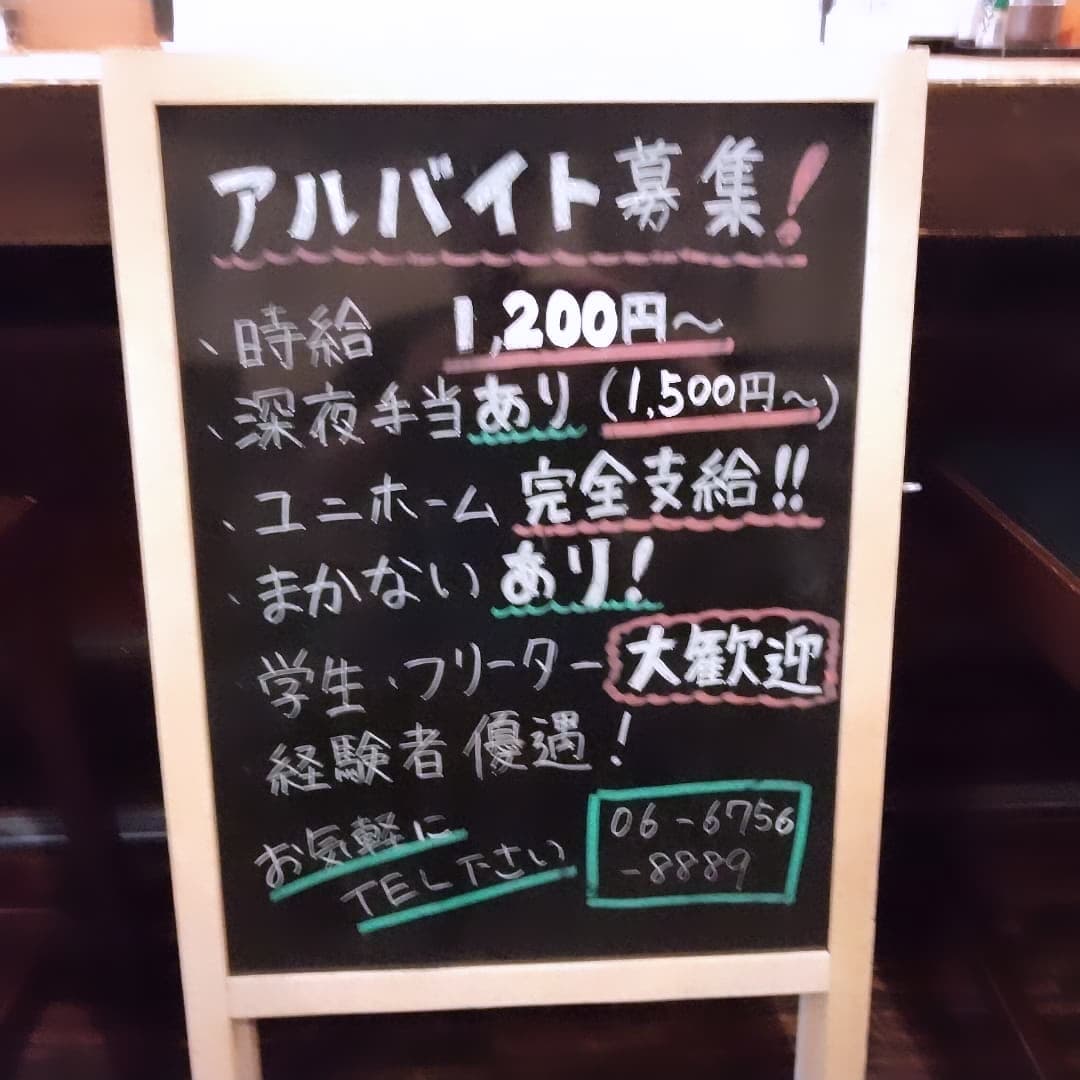 アルバイト募集!
、時給 1,200円～
、深夜手当あり(1,500円～)
、ユニホーム 完全支給!!
、まかない あり!
学生、フリーター 大歓迎
経験者 優遇!
お気軽に
TEL下さい
06-6756
-8889